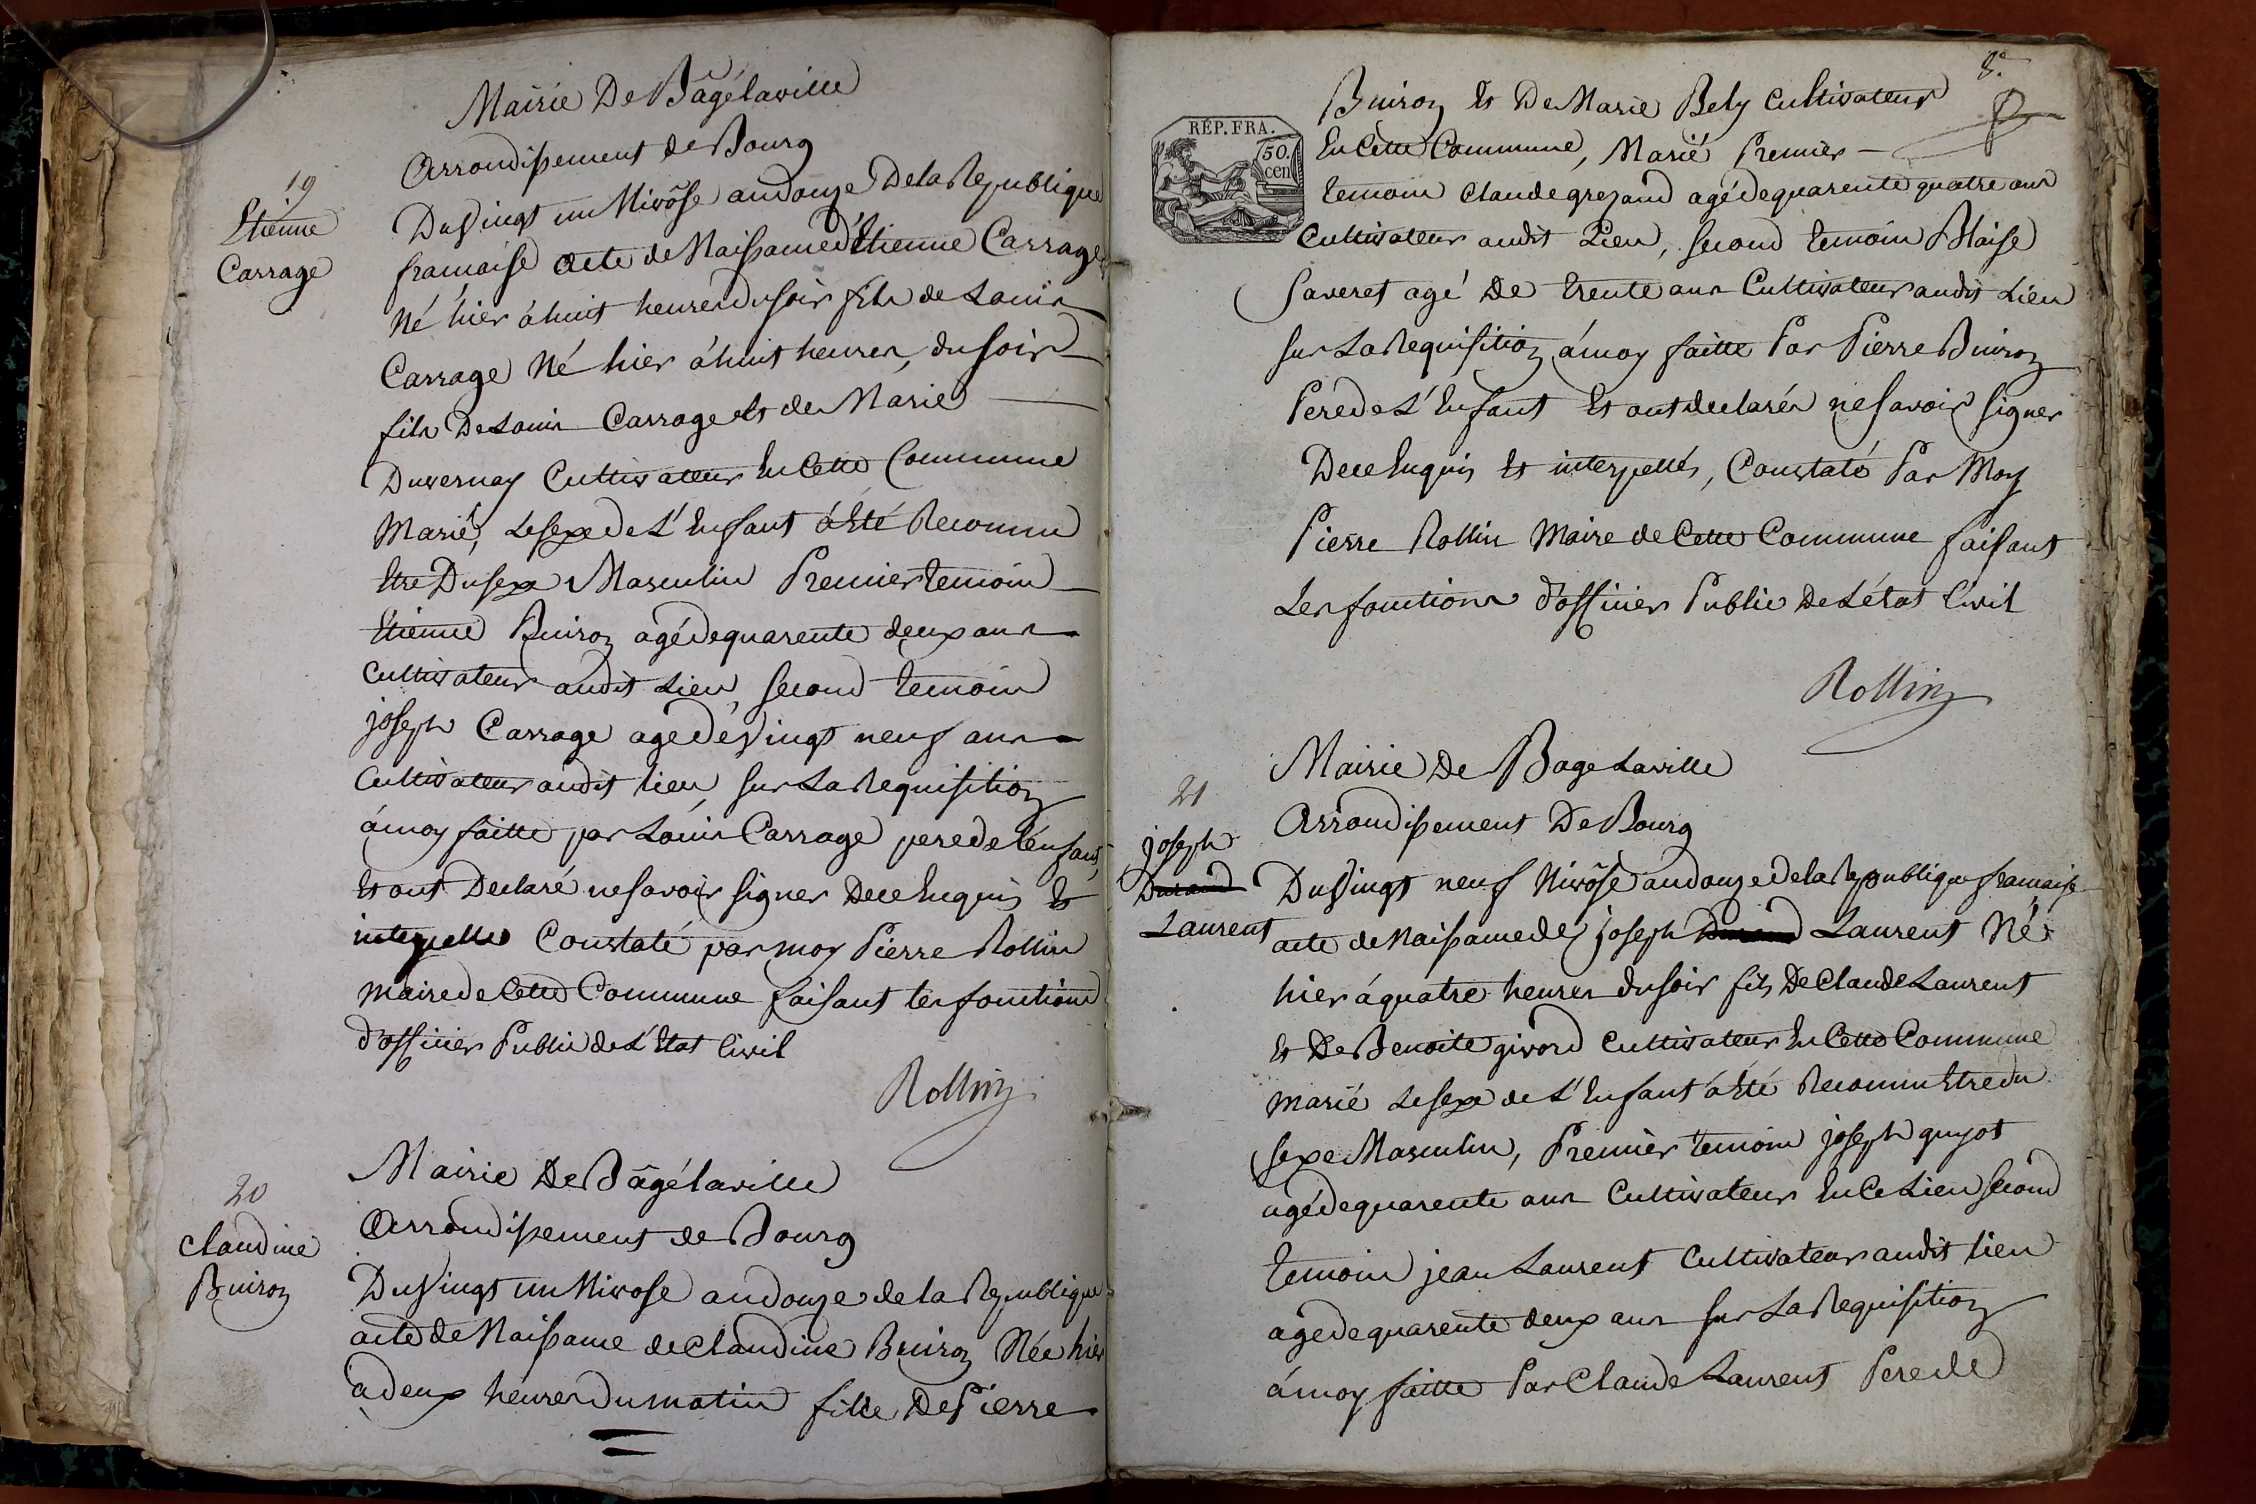 Mairie De Bâgélaville
Arrondissement de Bourg
19
Etienne
Carrage
Du Vingt un Nivôse an douze De la République
francaise acte de Naissance d'Etienne Carrage
Né hier à huit heures du soir fils de Louis
Carrage Né hier à huit heures, du soir
fils De Louis Carrage et de Marie
Duvernay Cultivateur En Cette Commune
Marié, Le sexe de L'Enfant à Eté Reconnu
Etre Du sexe Masculin Premier temoin
Etienne Buiron agé de quarente deux ans
Cultivateur audit Lieu, second temoin
joseph Carrage agé de Vingt neuf ans
Cultivateur audit lieu, sur La Requisition
à moy faitte par Louis Carrage pere de l'enfant,
Et ont Declaré ne savoir signer De ce Enquis Et
interpellé Constaté par moy Pierre Rollin
maire de Cette Commune faisant les fonctions
d'officier Public de L'Etat Civil
Rollin
Mairie De Bâgélaville
Arrondissement de Bourg
20
Claudine
Buiron
Du Vingt un Nivose an douze de la République
acte de Naissance de Claudine Buiron Née hier
à deux heures du matin fille De Pierre
8e
Buiron Et De Marie Bely Cultivateur
En Cette Commune, Marié Premier
RÉP. FRA.
50.
cen
temoin Claude grezaud agé de quarente quatre ans
Cultivateur audit Lieu, second temoin Blaise
Saveret agé De trente ans Cultivateur audit Lieu
sur La Requisition à moy faitte Par Pierre Buiron
Pere de L'Enfant Et ont declarés ne savoir signer
De ce Enquis Et interpellés, Constaté Par Moy
Pierre Rollin Maire de Cette Commune faisant
Les fonctions d'officier Public De L'état Civil
Rollin
Mairie De Bage Laville
Arrondissement De Bourg
21
joseph
Durand
Laurent
Du Vingt neuf Nivôse an douze de la République francaise
acte de Naissance de joseph Durand Laurent Né
hier à quatre heures du soir fils De Claude Laurent
Et De Benoite givord Cultivateur En Cette Commune
marié Le sexe de L'Enfant à Eté Reconnu Etre du
sexe Masculin, Premier temoin joseph guyot
agé de quarente ans Cultivateur En Ce Lieu second
temoin jean Laurent Cultivateur audit lieu
agé de quarente deux ans sur La Requisition
à moy faitte Par Claude Laurent Pere de